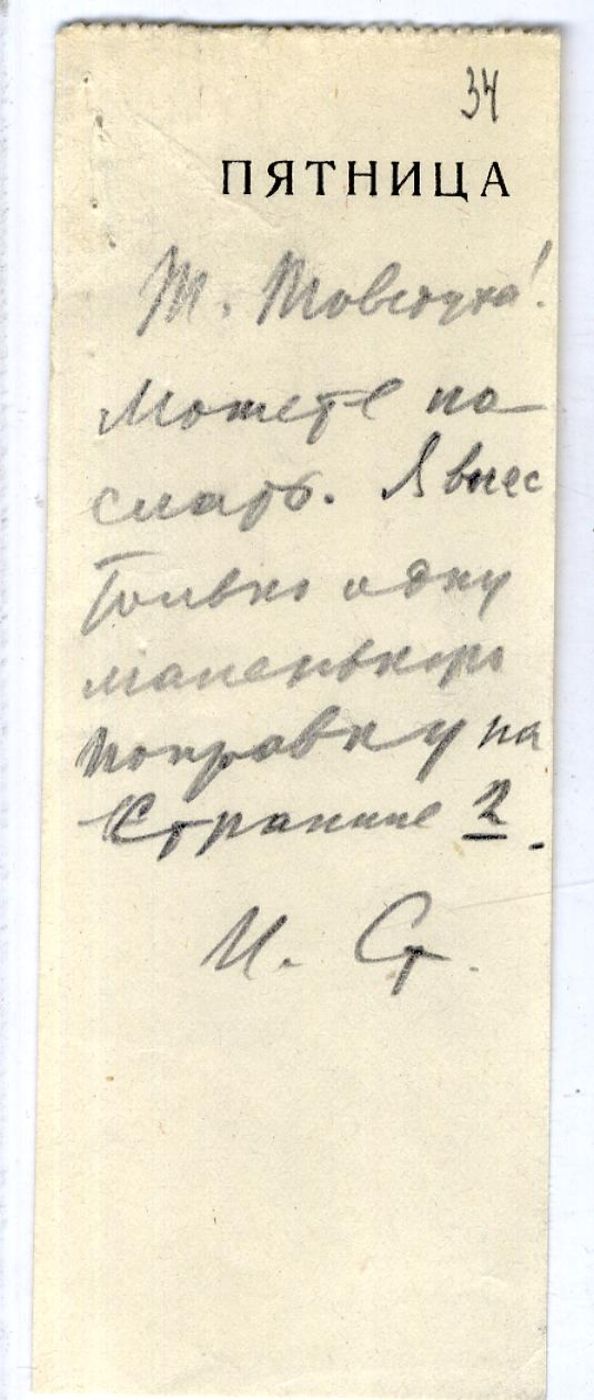 34
ПЯТНИЦА
Т. Товстуха!
Можете по-
слать. Я внес
только одну
маленькую
поправку на
странице 2.
И. Ст.